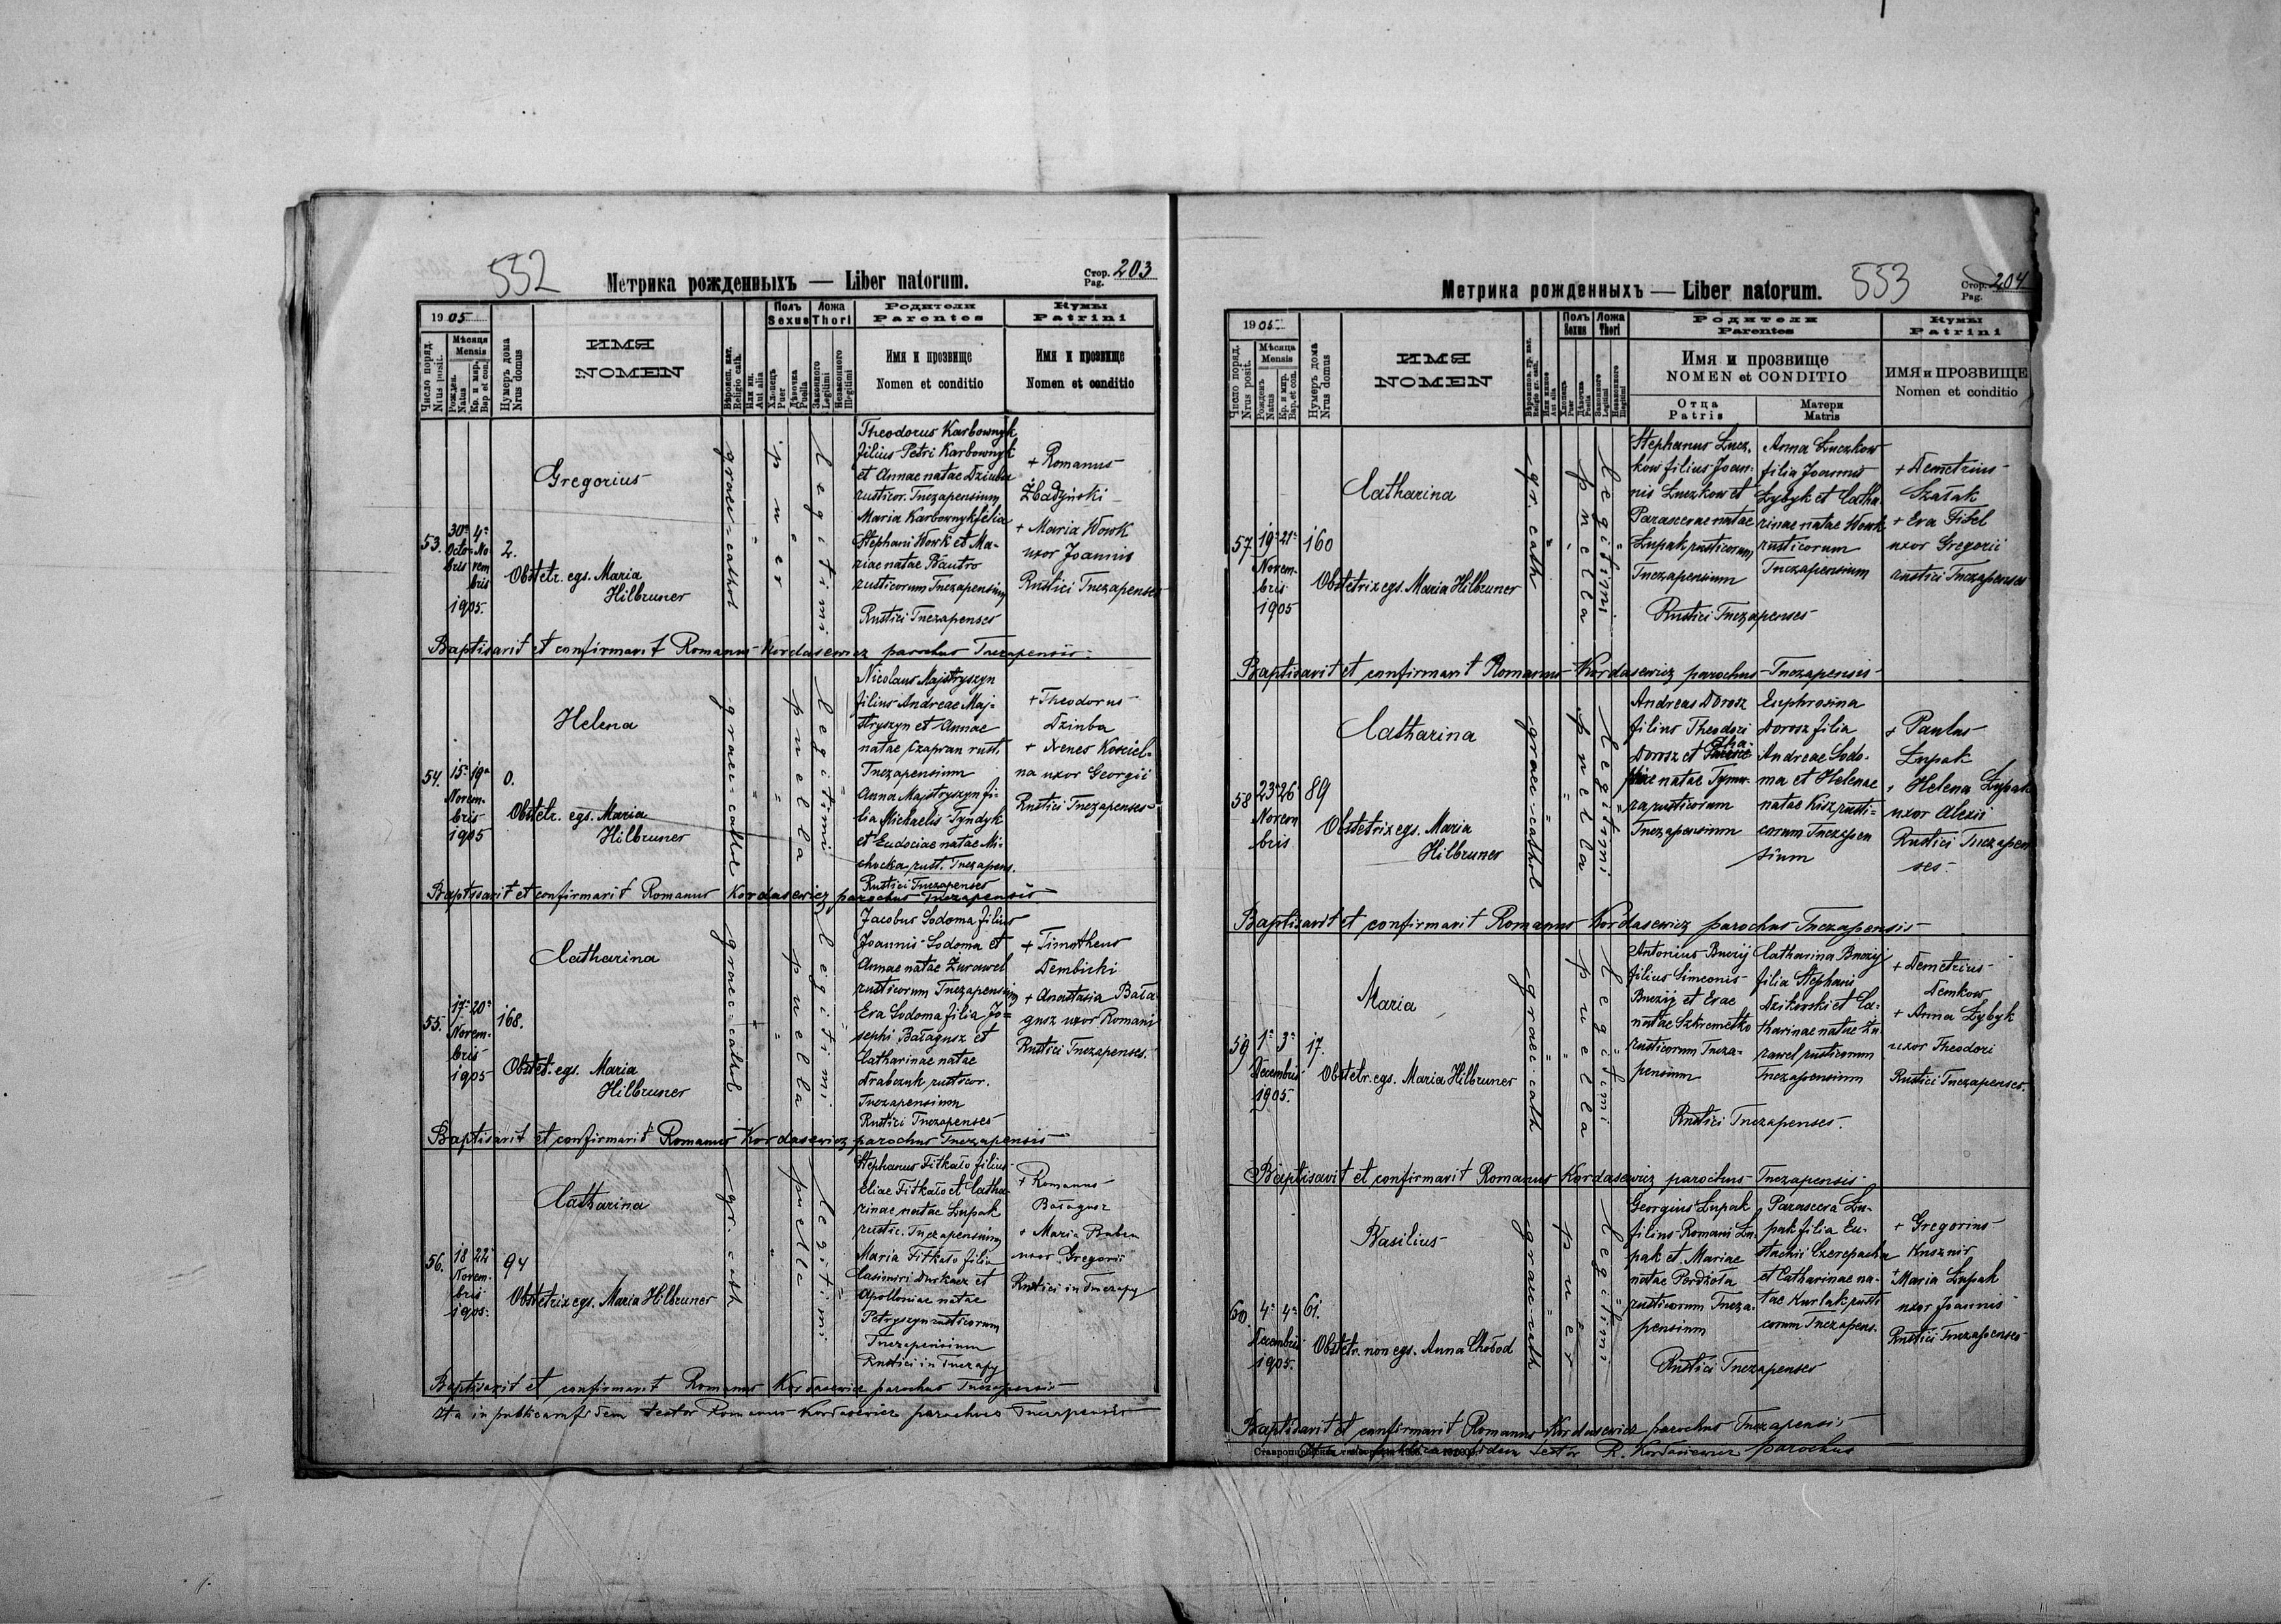 552
Метрика рожденныхъ — Liber natorum.
Стор. 203
Pag.
1905
Число поряд.
Nrus posit.
Мѣсяця
Mensis
Рожден.
Natus
Кр. и мѵр.
Bap et con.
Нумеръ дома
Nrus domus
ИМЯ
NOMEN
Religio cath.
Или ин.
Aut alia
Полъ
Sexus
Хлопець
Puer
Дѣвочка
Puella
Ложа
Thori
Законного
Legitimi
Незаконного
Illegitimi
Родители
Parentes
Имя и прозвище
Nomen et conditio
Кумы
Patrini
Имя и прозвище
Nomen et conditio
53.
30ª 4ª
Octo- No
bris vem
bris
1905.
2.
Gregorius
Obstetr. egs. Maria
Hilbruner
graec-cathol
puer
legitimi
Theodorus Karbownyk
filius Petri Karbownyk
et Annae natae Dziuba
rusticor. Tnczapensium
Maria Karbownyk filia
Stephani Wowk et Ma-
riae natae Bautro
rusticorum Tnczapensium
Rustici Tnczapenses
+ Romanus
Żbadyński
+ Maria Wowk
uxor Joannis
Rustici Tnczapenses
Baptisavit et confirmavit Romanus Kordasewicz parochus Tnczapensis
54.
15ª 19ª
Novem-
bris
1905
0.
Helena
Obstetr. egs. Maria
Hilbruner
graec-cathol
puella
legitimi
Nicolaus Majstryszyn
filius Andreae Maj-
stryszyn et Annae
natae Czapran rust.
Tnczapensium
Anna Majstryszyn fi-
lia Michaelis Tyndyk
et Eudociae natae Mi-
chocka rust. Tnczapens.
Rustici Tnczapenses
+ Theodorus
Dziuba
+ Xenes Kościel-
na uxor Georgii
Rustici Tnczapenses
Baptisavit et confirmavit Romanus Kordasewicz parochus Tnczapensis
55.
17ª 20ª
Novem-
bris
1905
168.
Catharina
Obstet. egs. Maria
Hilbruner
graec-cathol
puella
legitimi
Jacobus Sodoma filius
Joannis Sodoma et
Annae natae Żurawel
rusticorum Tnczapensium
Eva Sodoma filia Jo-
sephi Bałagusz et
Catharinae natae
Drabczuk rusticor.
Tnczapensium
Rustici Tnczapenses
+ Timotheus
Dembicki
+ Anastasia Bała-
gusz uxor Romani
Rustici Tnczapenses.
Baptisavit et confirmavit Romanus Kordasewicz parochus Tnczapensis
56.
18 22
Novem-
bris
1905.
94
Catharina
Obstetrix egs. Maria Hilbruner
gr. cath
puella
legitimi
Stephanus Fitkało filius
Eliae Fitkało et Catha-
rinae natae Łupak
rustic. Tnczapensium
Maria Fitkało filia
Casimiri Durkacz et
Apolloniae natae
Petryszyn rusticorum
Tnczapensium
Rustici in Tnczapy
+ Romanus
Bałagusz
+ Maria Buben
uxor Gregorii
Rustici in Tnczapy
Baptisavit et confirmavit Romanus Kordasewicz parochus Tnczapensis
Ita in publicam fidem testor Romanus Kordasewicz parochus Tnczapensis
Метрика рожденныхъ — Liber natorum.
553
Стор. 204
Pag.
1905
Число поряд.
Nrus posit.
Мѣсяця
Mensis
Рожденъ
Natus
Кр. и мѵр.
Bap. et con.
Нумеръ дома
Nrus domus
ИМЯ
NOMEN
Полъ
Sexus
Хлопець
Puer
Дѣвочка
Puella
Ложа
Thori
Законного
Legitimi
Незаконного
Illegitimi
Родители
Parentes
Имя и прозвище
NOMEN et CONDITIO
Отца
Patris
Матери
Matris
Кумы
Patrini
ИМЯ и ПРОЗВИЩЕ
Nomen et conditio
57.
19ª 21ª
Novem-
bris
1905
160
Catharina
Obstetrix egs. Maria Hilbruner
gr. cath
puella
legitimi
Stephanus Łucz-
kow filius Joan-
nis Łuczkow et
Parascevae natae
Łupak rusticorum
Tnczapensium
Anna Łuczkow
filia Joannis
Łybyk et Catha
rinae natae Wowk
rusticorum
Tnczapensium
Rustici Tnczapenses
+ Demetrius
Szałak
+ Eva Fitel
uxor Gregorii
rustici Tnczapenses
Baptisavit et confirmavit Romanus Kordasewicz parochus Tnczapensis
58
23 26
Novem
bris
89
Catharina
Obstetrix egs. Maria
Hilbruner
graec-cathol
puella
legitimi
Andreas Dorosz
filius Theodori
Dorosz et
natae
rusticorum
Tnczapensium
Euphrosina
Dorosz filia
Andreae Sodo-
ma et Helenae
natae Kisz rusti-
corum Tnczapen
sium
+ Paulus
Łupak
+ Helena Łupak
uxor Alexii
Rustici Tnczapen
ses.
Baptisavit et confirmavit Romanus Kordasewicz parochus Tnczapensis
59
1ª 3ª
Decembris
1905.
17.
Maria
Obstetr. egs. Maria Hilbruner
graec. cath
puella
legitimi
Antonius Bnezij
filius Simeonis
Bnezij et Evae
natae Sztremetko
rusticorum Tncza-
pensium
Catharina Bnezij
filia Stephani
Dzikowski et Ca-
tharinae natae Żu-
rawel rusticorum
Tnczapensium
Rustici Tnczapenses.
+ Demetrius
Demkow
+ Anna Łybyk
uxor Theodori
Rustici Tnczapenses.
Baptisavit et confirmavit Romanus Kordasewicz parochus Tnczapensis
60.
4ª 4ª
Decembris
1905.
61.
Basilius
Obstetr. non egs. Anna Chobod
graec-cath
puer
legitimi
Georgius Łupak
filius Romani Łu-
pak et Mariae
natae Perdżoła
rusticorum Tncza-
pensium
Parasceva Łu-
pak filia Eu-
stachii Czerepacha
et Catharinae na-
tae Kurlak rusti
corum Tnczapens.
Rustici Tnczapenses
+ Gregorius
Kusznir
+ Maria Łupak
uxor Joannis
Rustici Tnczapenses
Baptisavit et confirmavit Romanus Kordasewicz parochus Tnczapensis
Ita in publicam fidem testor R. Kordasewicz parochus